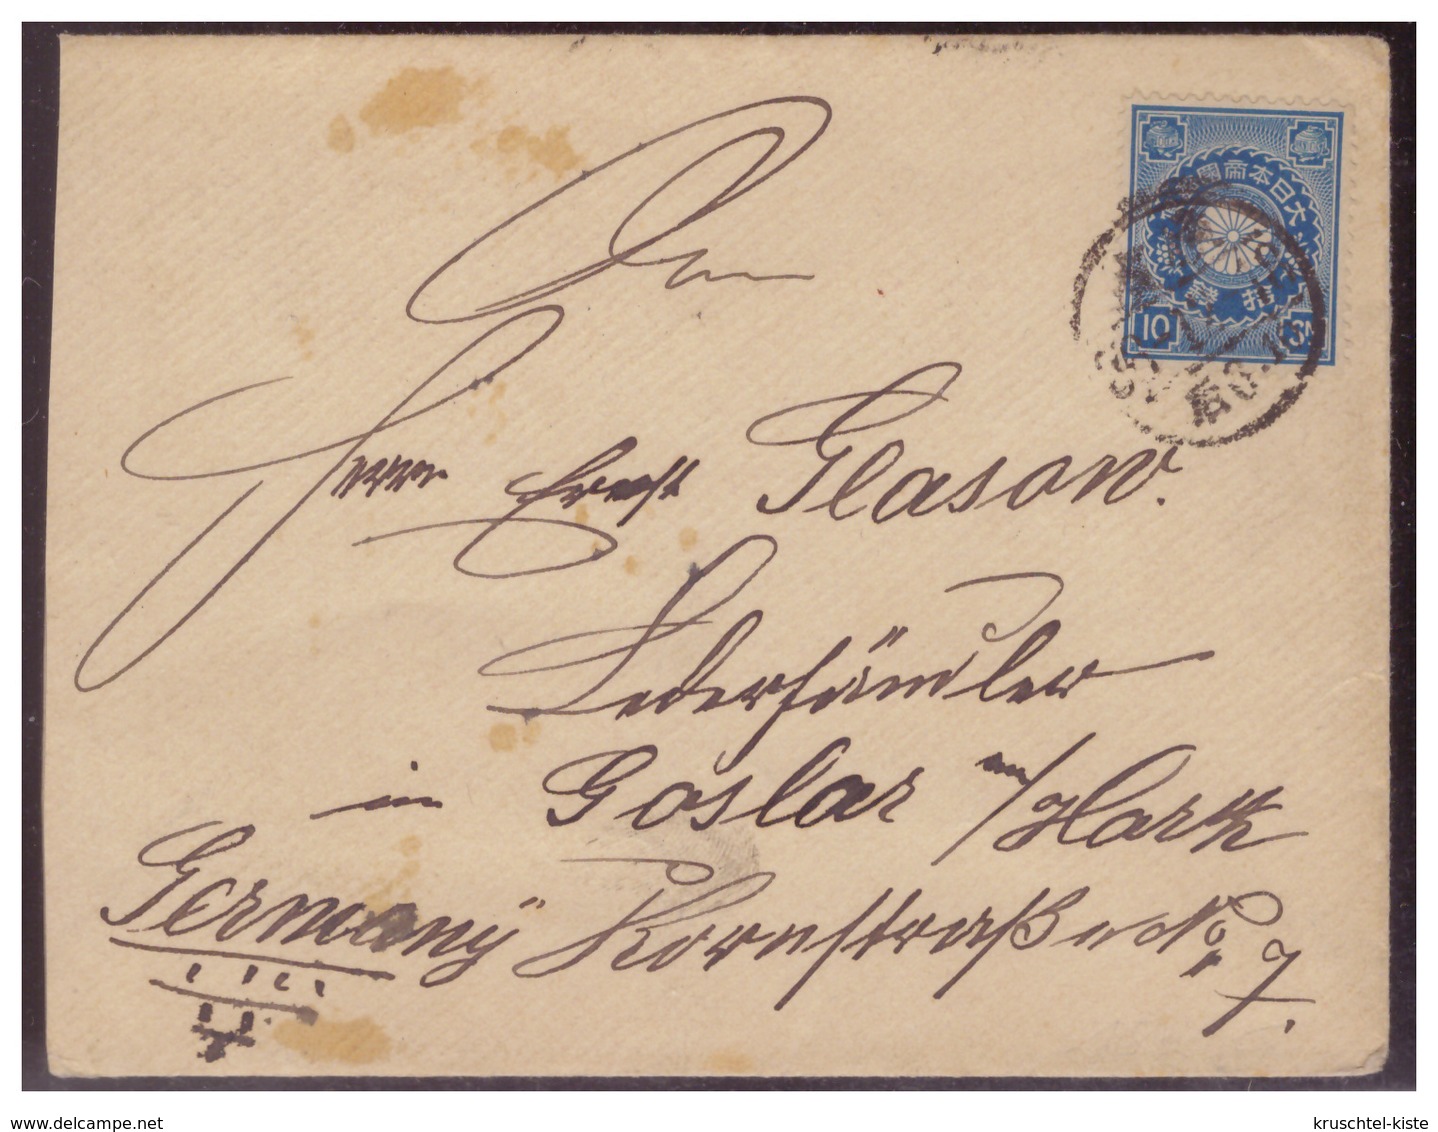 大日本帝國
郵
10
SN
An
Herrn Ernst Glasow.
Lederhändler
in Goslar am/Hartz
Germany Kornstraße No 7.
www.delcampe.net
kruschtel-kiste